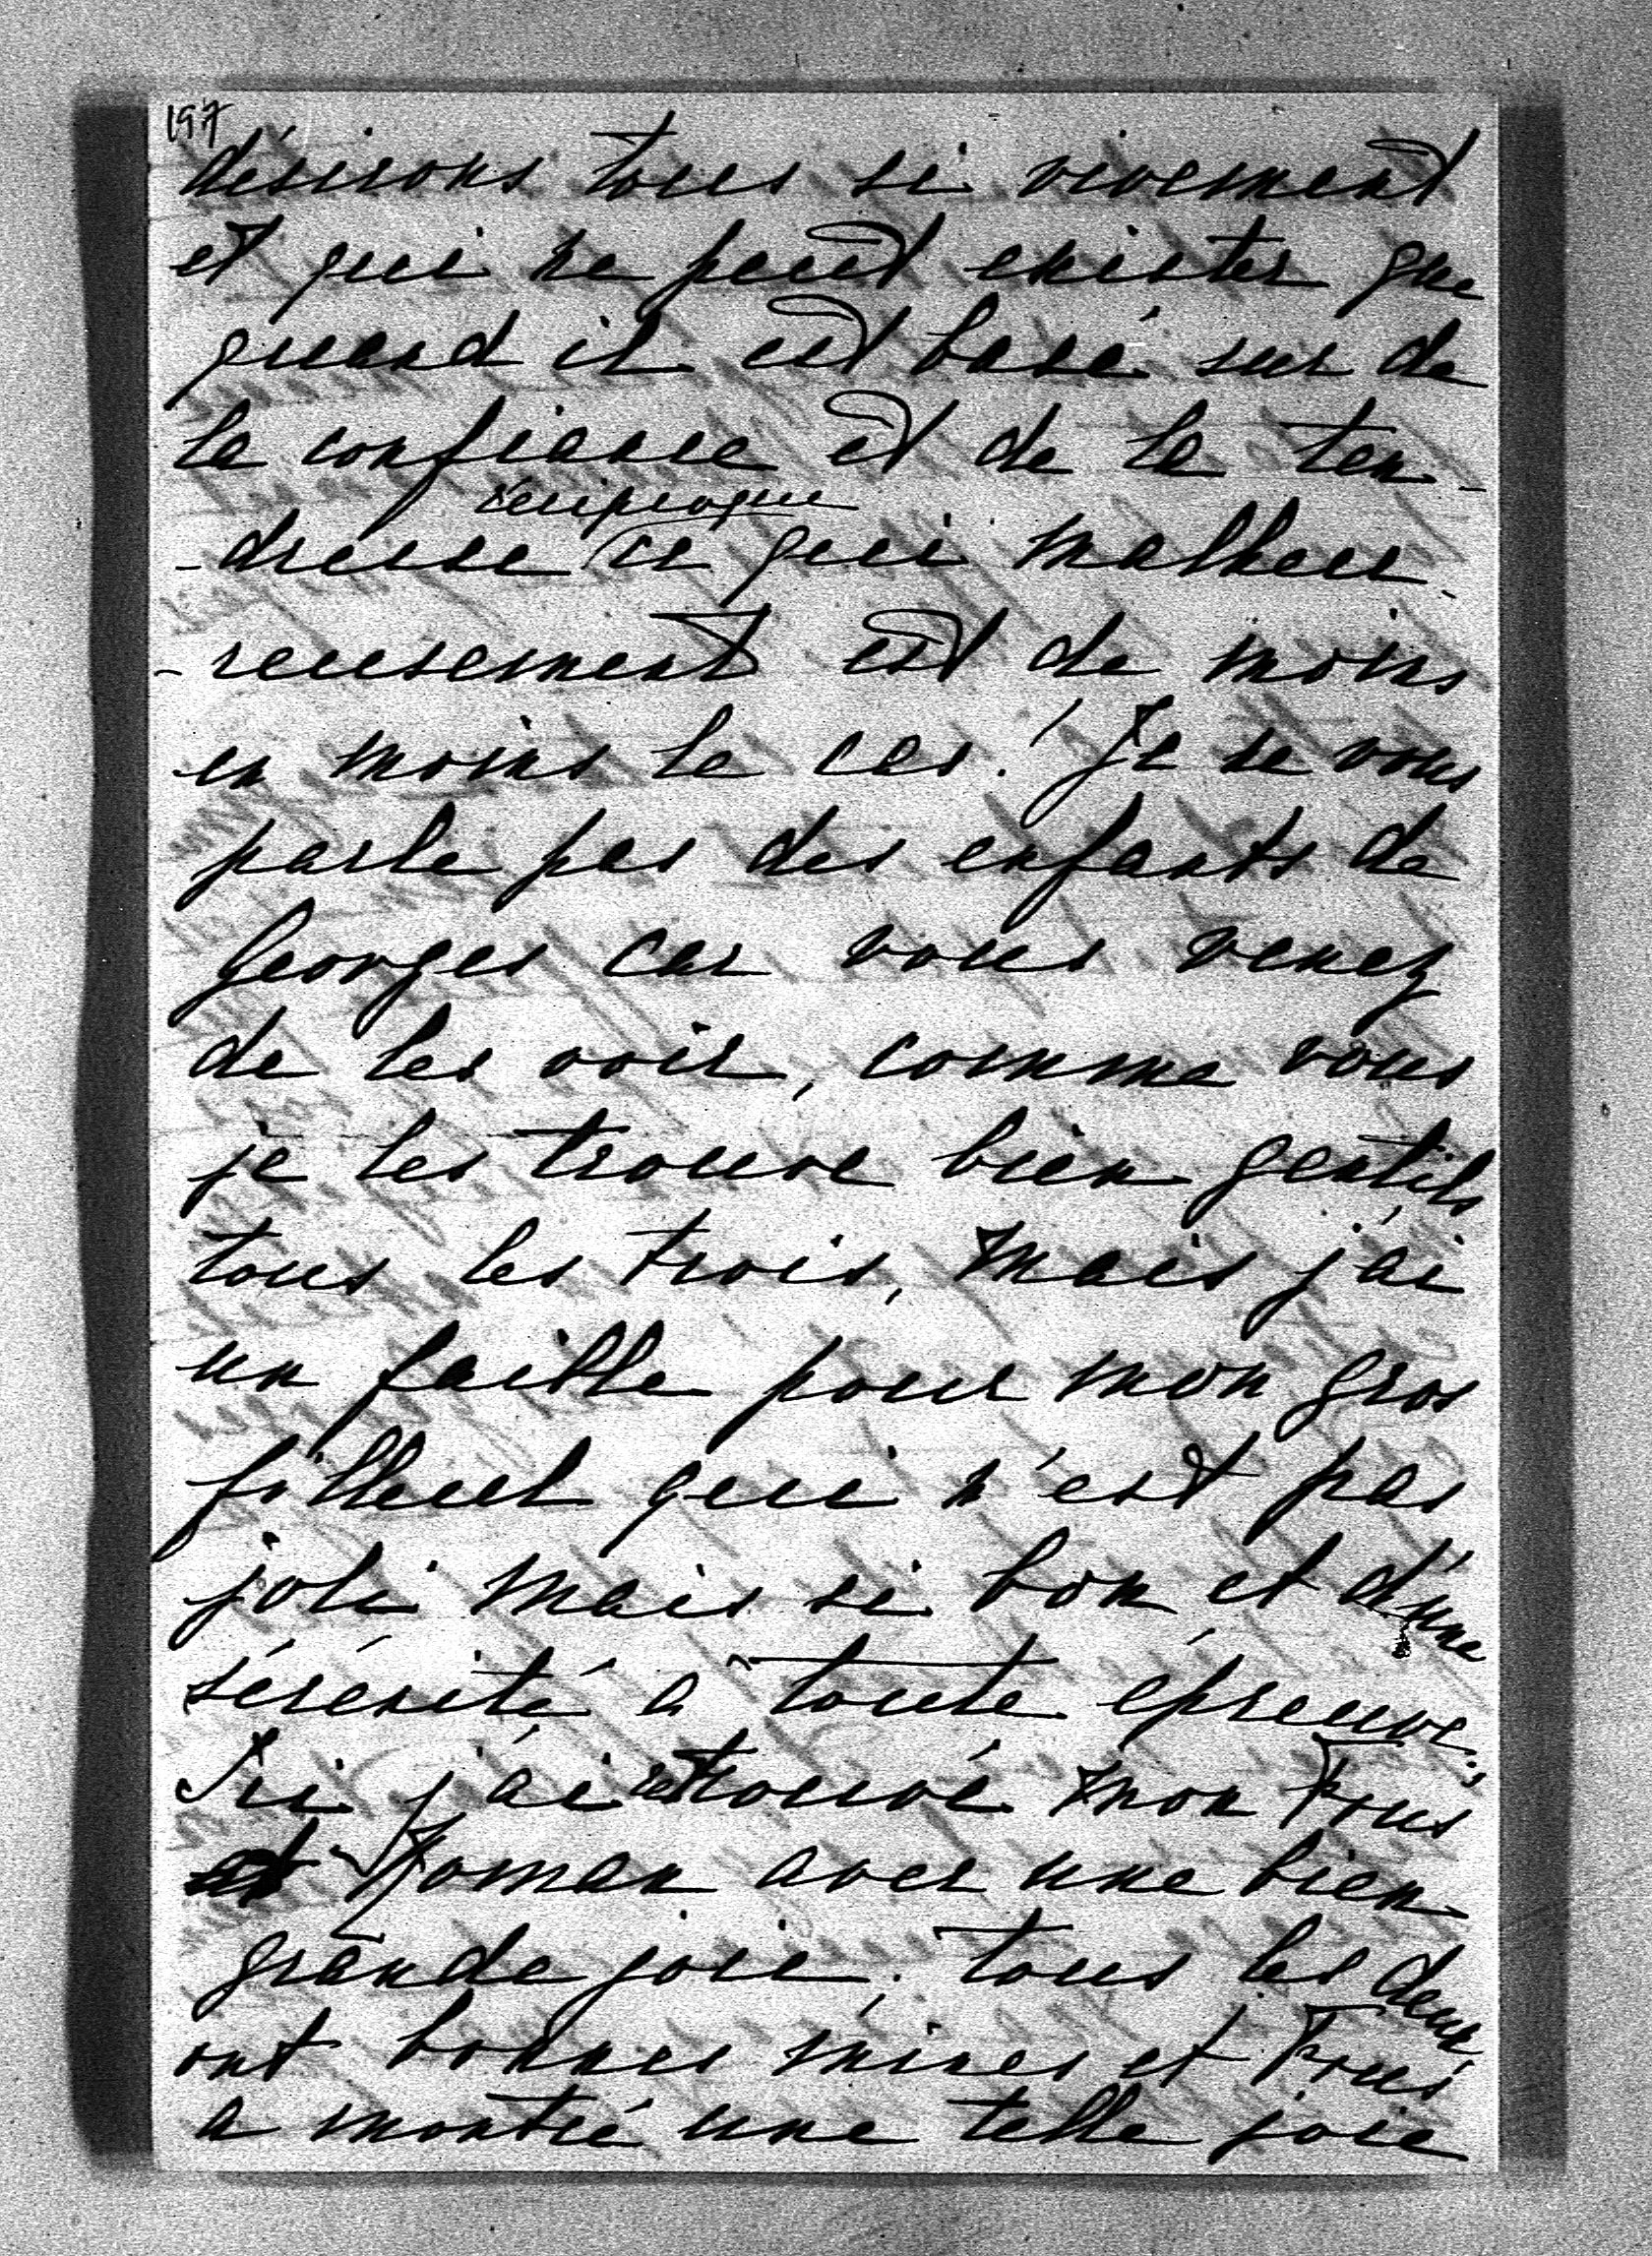 197
désirons tous si vivement
et qui ne peut exister que
quand il est basé sur de
la confiance et de la ten-
réciproque
-dresse ce qui malheu-
-reusement est de moins
en moins le cas. Je ne vous
parle pas des enfants de
Georges car vous venez
de les voir, comme vous
je les trouve bien gentils
tous les trois, mais j'ai
un faible pour mon gros
filleul qui n'est pas
joli mais si bon et d'une
sérénité à toute épreuve.
Ici j'ai retrouvé mon
Roman avec une bien
grande joie. tous les deux
ont bonnes mines et
a montré une telle joie